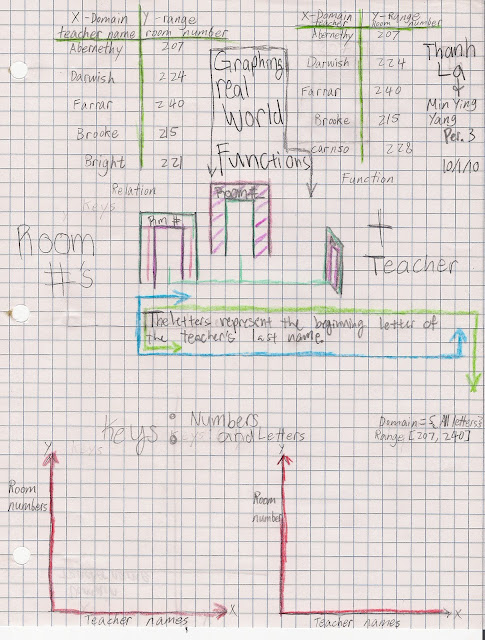 X-Domain Y-range
teacher name room number
Abernethy 207
Darwish 224
Farrar 240
Brooke 215
Bright 221
Relation
Keys
Graphing
real
World
Functions
X-Domain Y-Range
teacher Room number
Abernethy 207
Darwish 224
Farrar 240
Brooke 215
caruso 228
Function
Thanh
La
Min Ying
Yang
Per. 3
10/1/10
Room
#'s
Rm #
Room #
+
Teacher
The letters represent the beginning letter of
the teacher's last name
Keys: Numbers
and Letters
Domain = {All letters}
Range [207, 240]
Y
Room
numbers
X
Teacher names
Y
Room
number
X
Teacher names